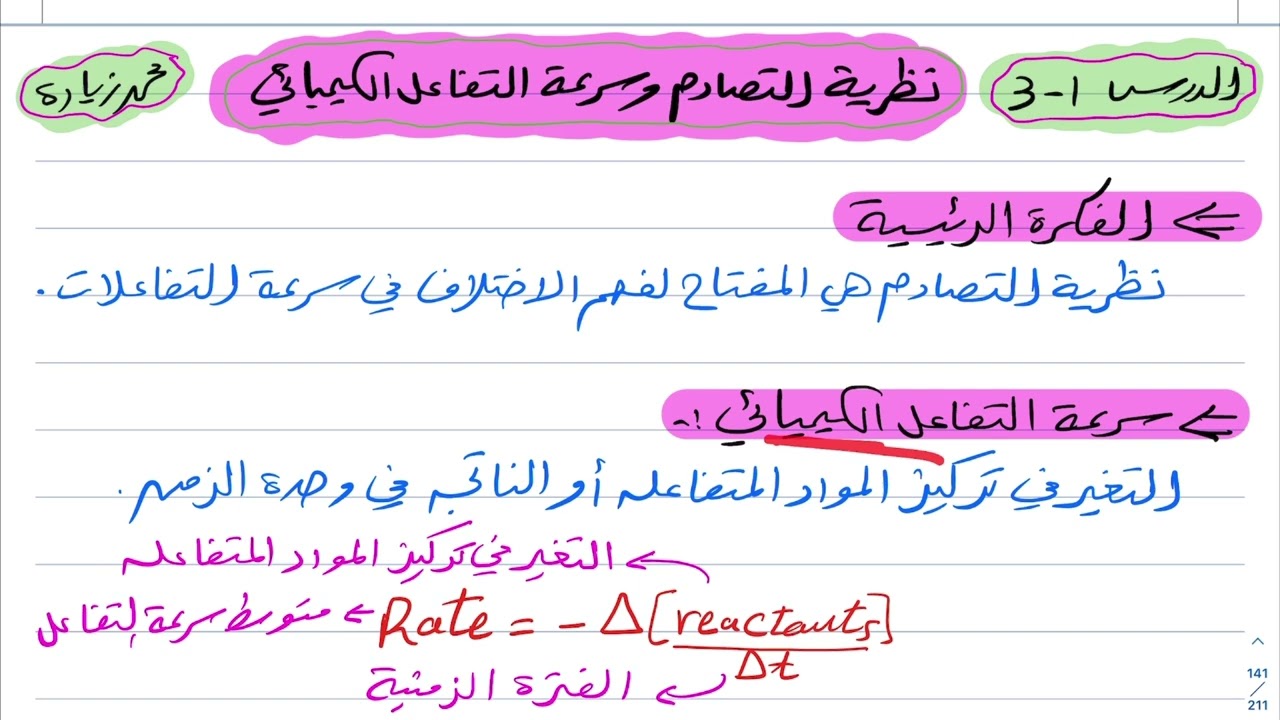 الدرس 1-3
نظرية التصادم وسرعة التفاعل الكيميائي
محمد زيادة
⇐ الفكرة الرئيسية
نظرية التصادم هي المفتاح لفهم الاختلاف في سرعة التفاعلات.
⇐ سرعة التفاعل الكيميائي :-
التغير في تركيز المواد المتفاعله أو الناتجه في وحدة الزمن.
التغير في تركيز المواد المتفاعله
متوسط سرعة التفاعل ← Rate = - Δ[reactants]
Δt
الفترة الزمنية
141
211